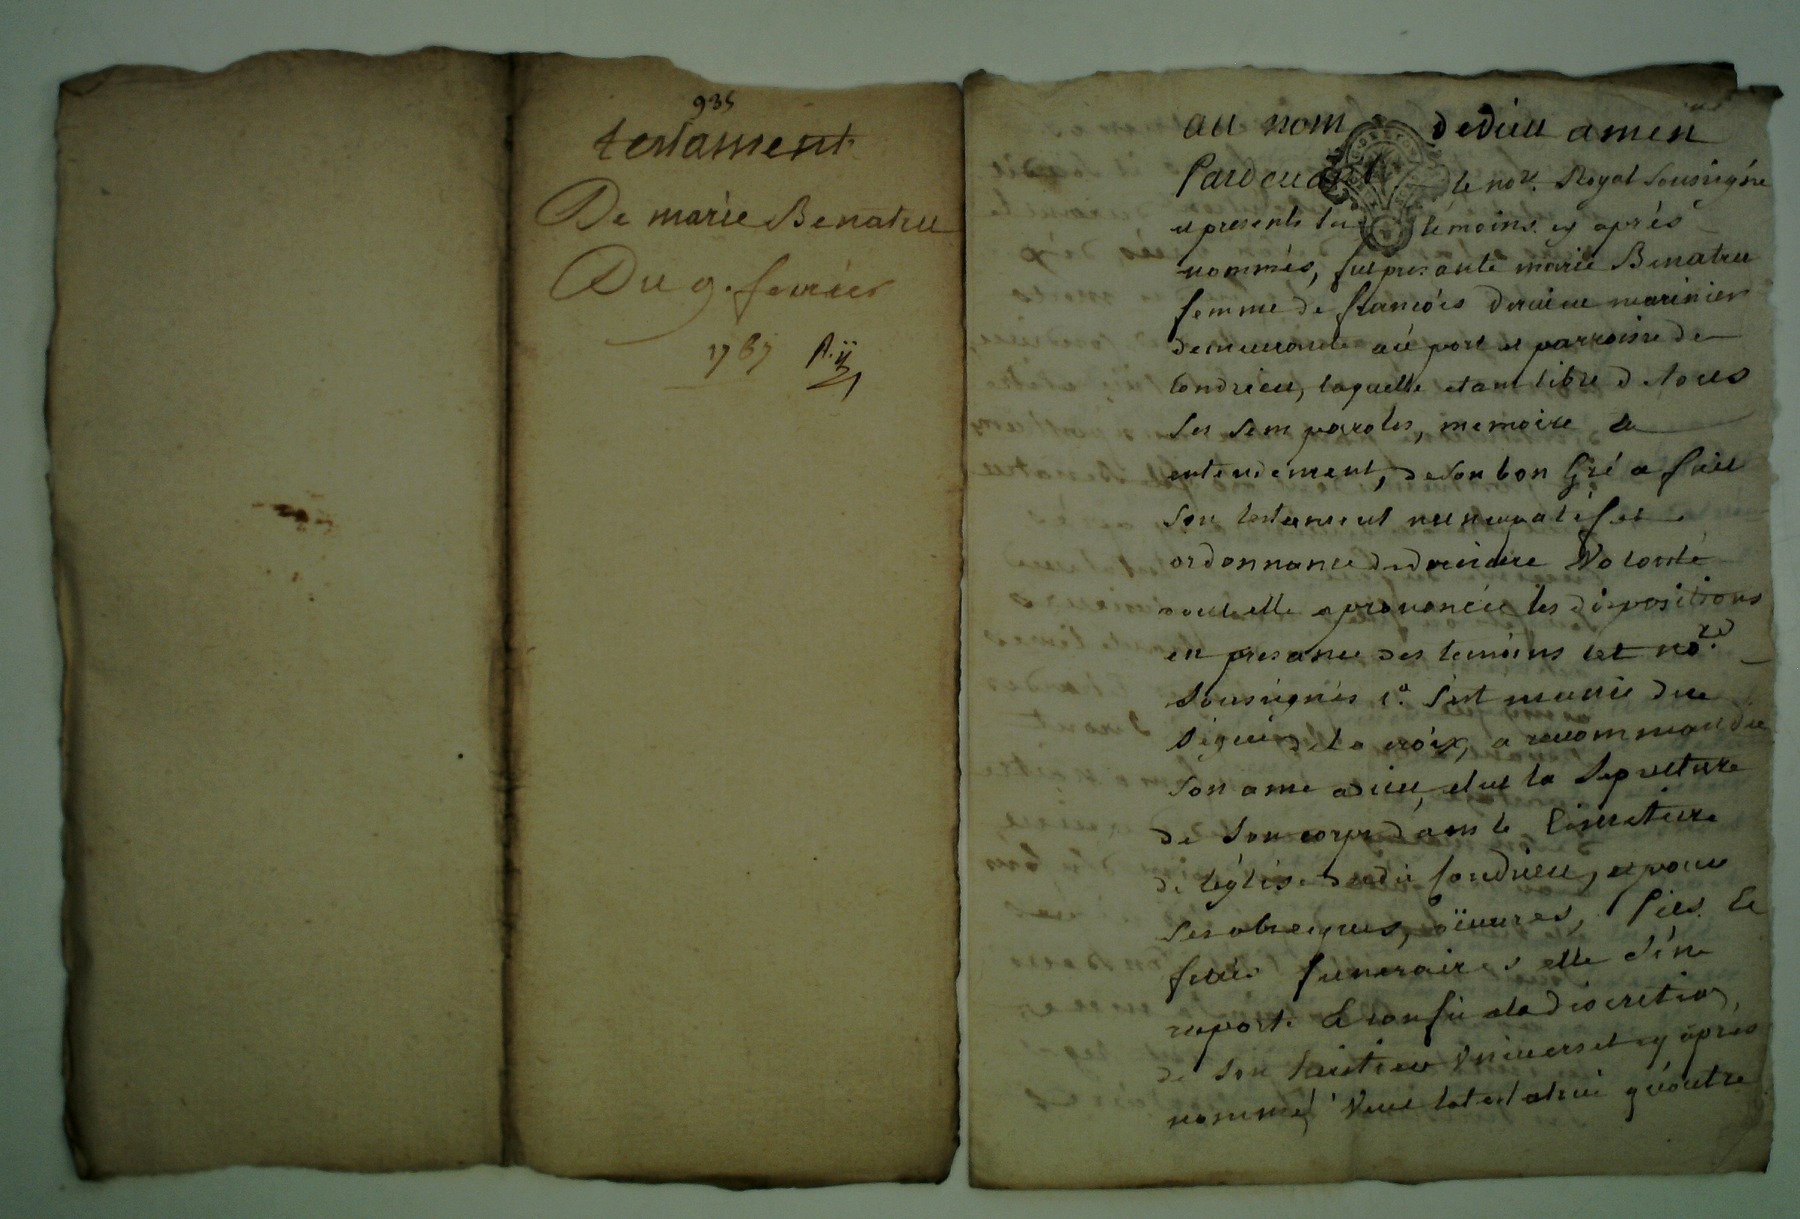 935
testament
De marie Benatru
Du 9. fevrier
1767
au nom de dieu amen
Pardevant le nore. Royal soussigné
et presents les témoins cy aprés
nommés, fut presante marie Benatru
femme de françois dervieu marinier
demeurante au port et parroisse de
Condrieu, laquelle etant libre de tous
ses sens paroles, memoire &
entendement, de son bon Gré a fait
son testament nuncupatif et
ordonnance de derniere Volonté
dont elle a prononcée les dispositions
en presance des temoins et nore.
soussignés 1°. s'est munie du
signe de la croix, a recommandé
son ame a dieu, elut la sepulture
de son corps dans le Cimetiere
de l'église dudit Condrieu, et pour
ses obseques, oüvures, Pies &
frais funeraires elle s'en
raport & confie a la discretion,
de son heritier Universel cy aprés
nommé, Veut la testatrice qu'outre